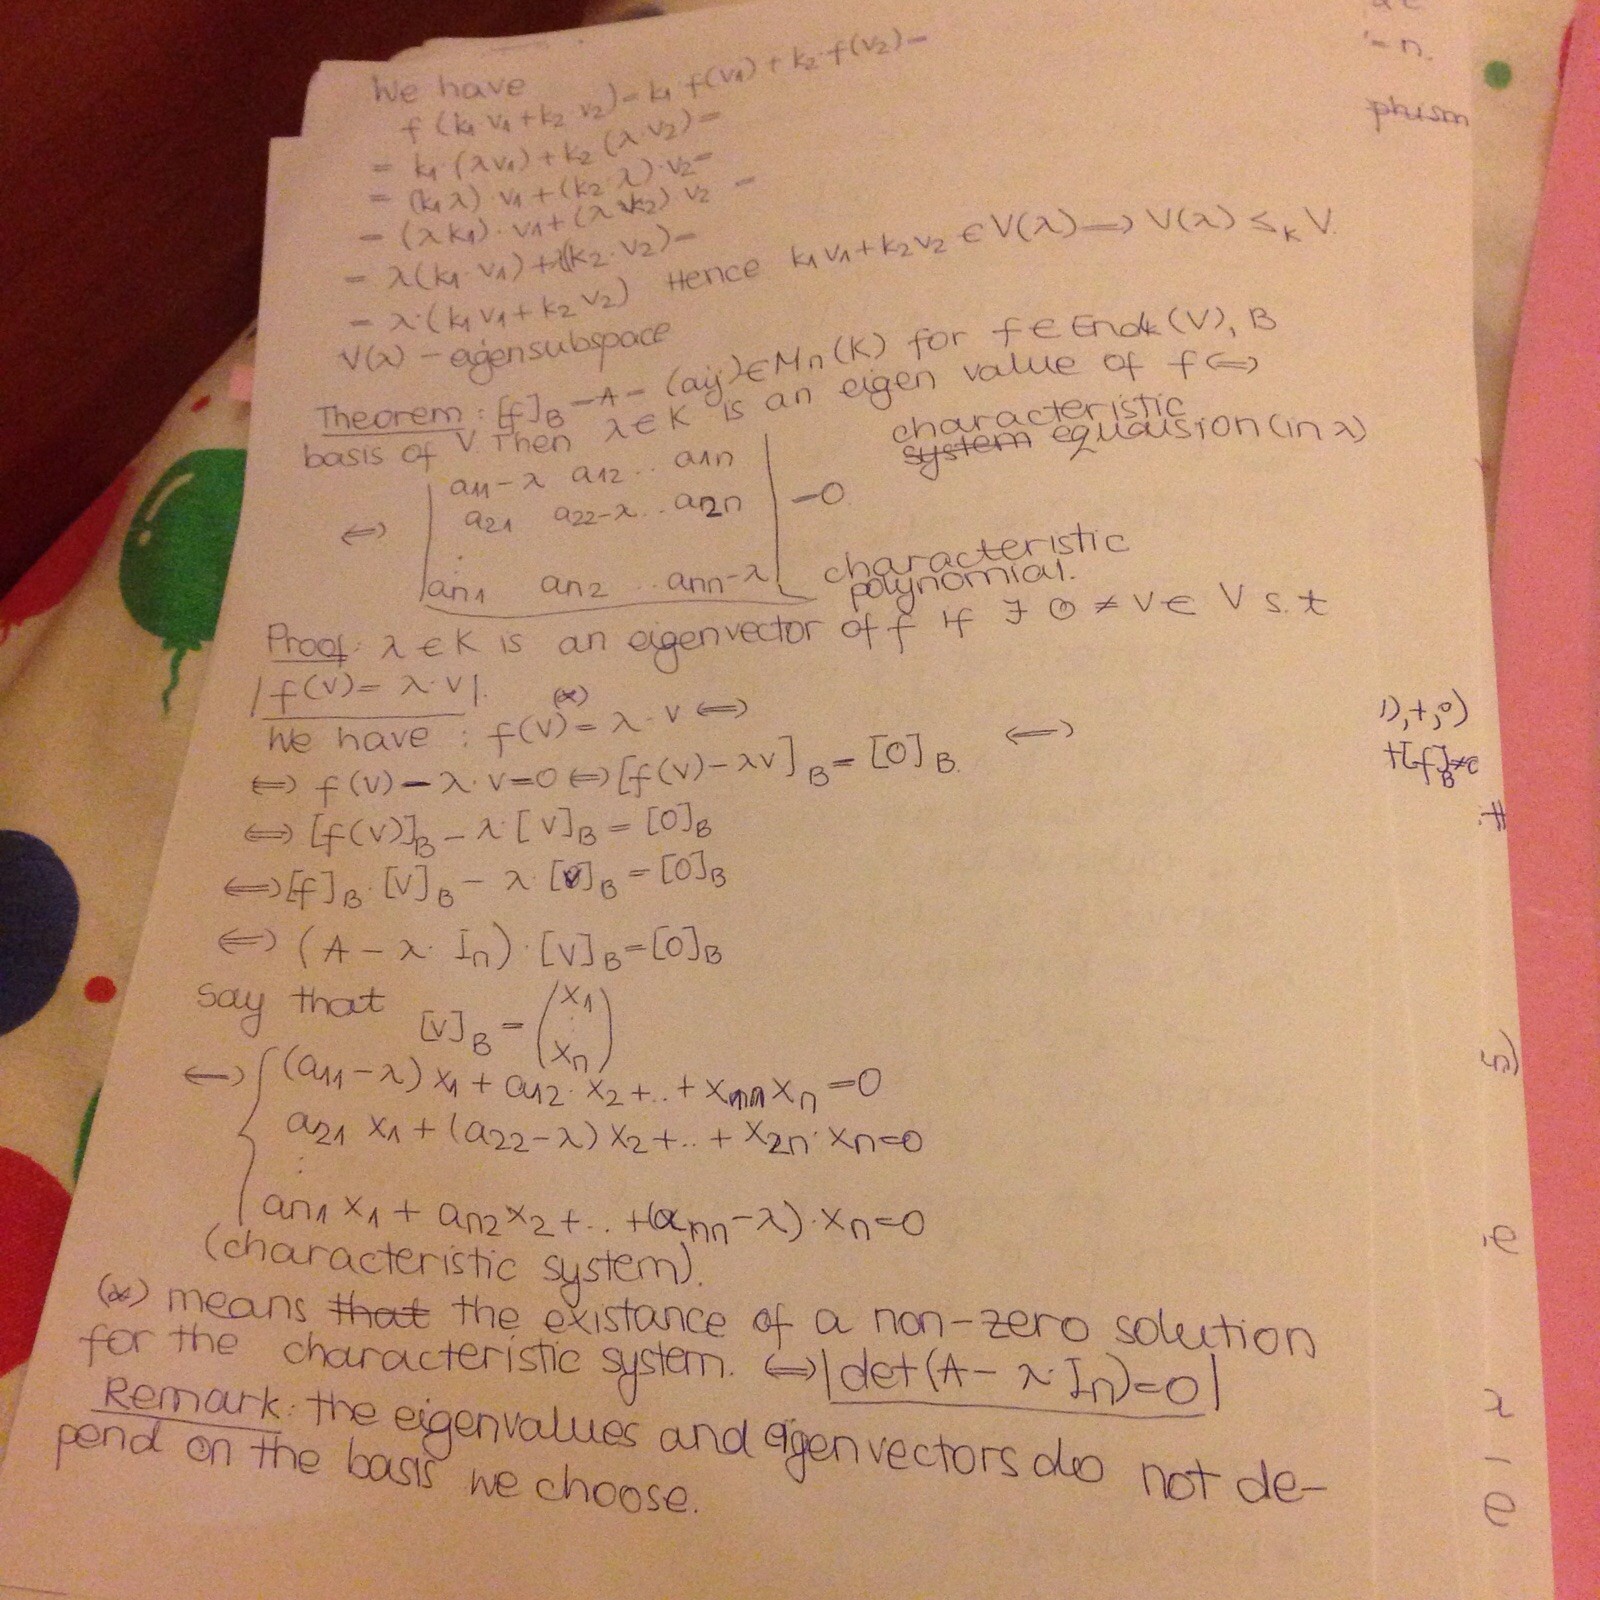 We have
f(k1 v1+k2 v2)=k1 f(v1)+k2·f(v2)=
= k1·(λv1)+k2(λ·v2)=
= (k1λ)·v1+(k2·λ)·v2=
= (λk1)·v1+(λk2) v2 =
= λ(k1·v1)+λ(k2·v2)=
= λ·(k1v1+k2v2) Hence k1v1+k2v2∈V(λ)⟹V(λ)≤K V.
V(λ) – eigensubspace
Theorem: [f]B=A=(aij)∈Mn(K) for f∈Endk(V), B
basis of V. Then λ∈K is an eigen value of f⟺
characteristic
system equausion(in λ)
a11-λ a12.. a1n
⟺ a21 a22-λ.. a2n =0
:
an1 an2 ..ann-λ
characteristic
polynomial.
Proof: λ∈K is an eigenvector of f if ∃ 0≠v∈V s.t
|f(v)=λ·v|.
We have: f(v)=λ·v ⟺
(*)
⟺ f(v)-λ·v=0⟺[f(v)-λv]B=[0]B. ⟺
⟺[f(v)]B-λ·[v]B=[0]B
⟺[f]B·[v]B-λ·[v]B=[0]B
⟺(A-λ·In)·[v]B=[0]B
say that [v]B=(x1 : xn)
⟺{(a11-λ)x1+a12·x2+..+x1nxn=0
a21 x1+(a22-λ)x2+..+x2n·xn=0
:
an1x1+an2x2+..+(ann-λ)·xn=0
(characteristic system).
(*) means that the existance of a non-zero solution
for the characteristic system. ⟺|det(A-λ·In)=0|
Remark: the eigenvalues and eigenvectors do not de-
pend on the basis we choose.
-n.
phism
1),+,∘)
+[f]B≠0
λ
-
e